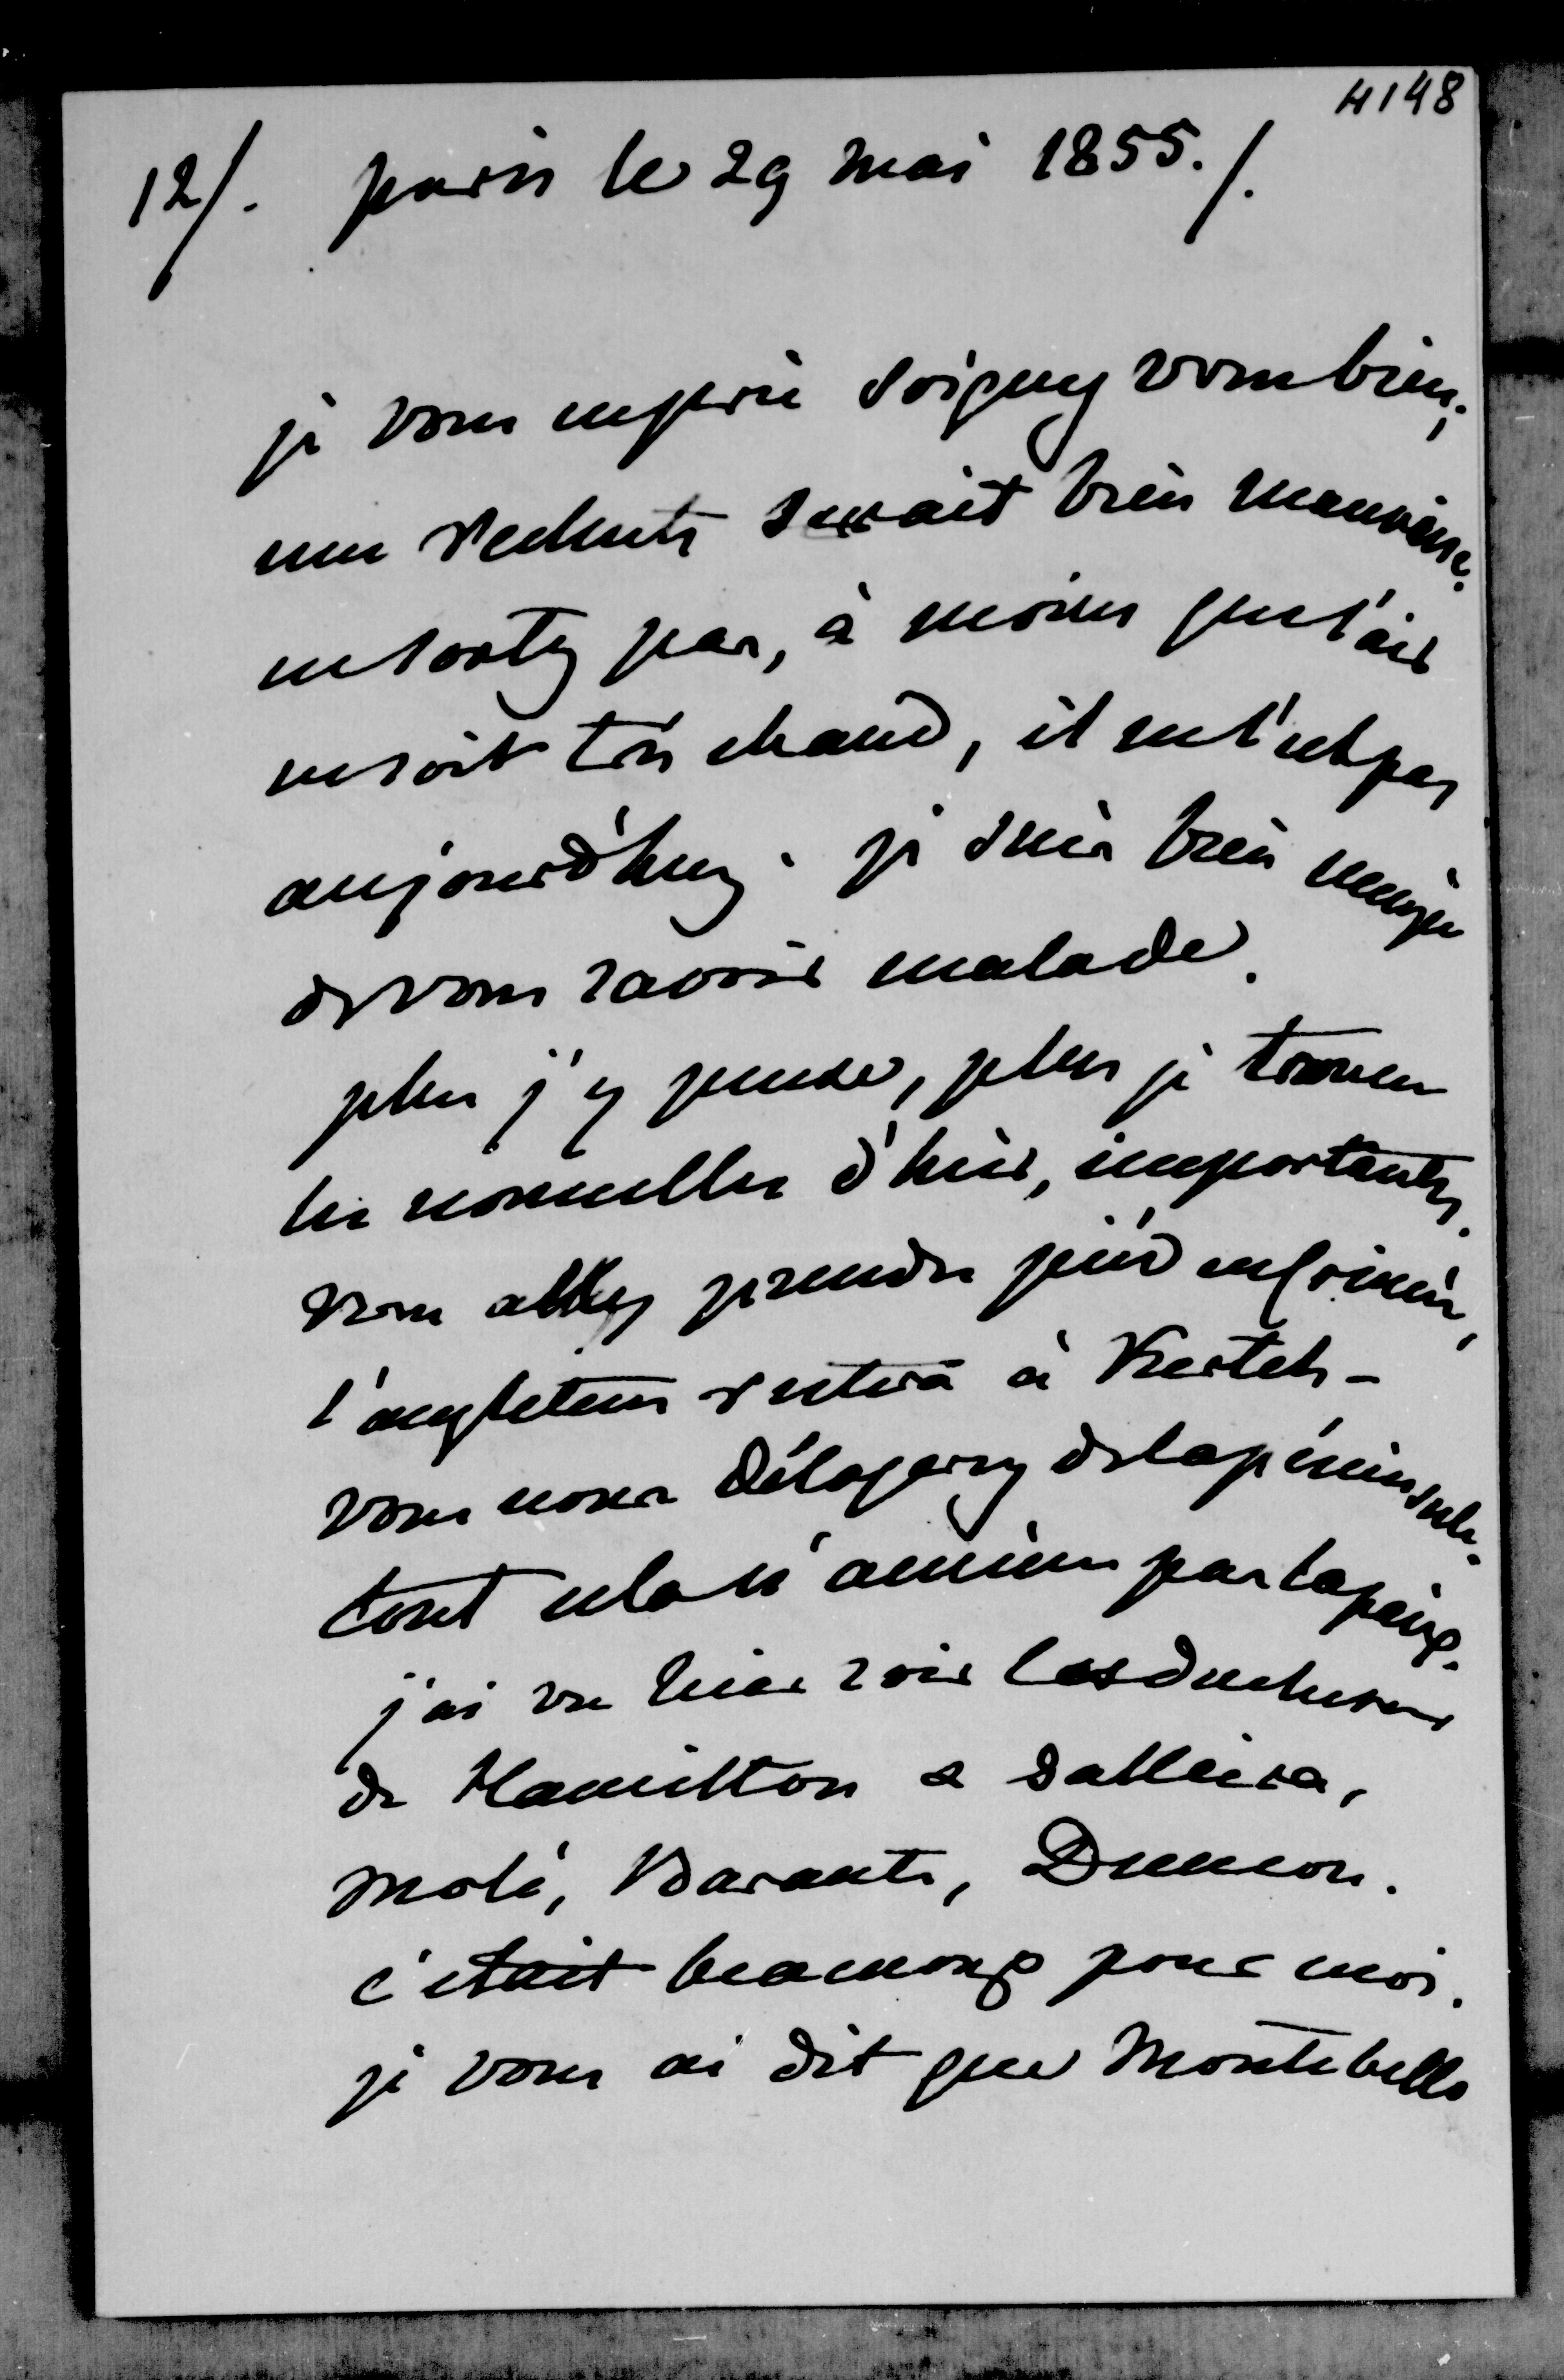 4148
12/. paris le 29 mai 1855./.
je vous en prie soignez vous bien;
une rechute serait bien mauvaise.
ne sortez pas, à moins que l'air
ne soit très chaud, il ne l'est pas
aujourd'huy. je suis bien
de vous savoir malade.
plus j'y pense, plus je trouve
les nouvelles d'hier, importantes.
vous allez prendre pied en Crimée,
l'angleterre restera à Kertch -
vous nous délogerez de la péninsule.
tout cela n'amène pas la paix.
j'ai vu hier soir les duchesses
de Hamilton & Galliera,
Molé, Barante, Dumon.
c'etait beaucoup pour moi.
je vous ai dit que Montebello